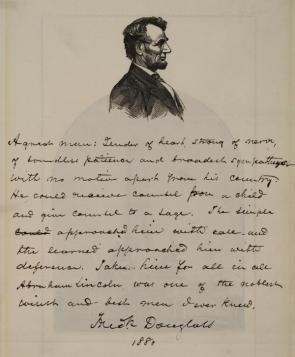 A great man: Tender of heart, strong of nerve,
of boundless patience and broadest sympathy
with no motive apart from his country
He could receive counsel from a child
and give counsel to a sage. The simple
could approached him with ease and
the learned approached him with
deference. Take him for all in all
Abraham Lincoln was one of the noblest
wisest and best men I ever knew.
Fredk Douglass
1880